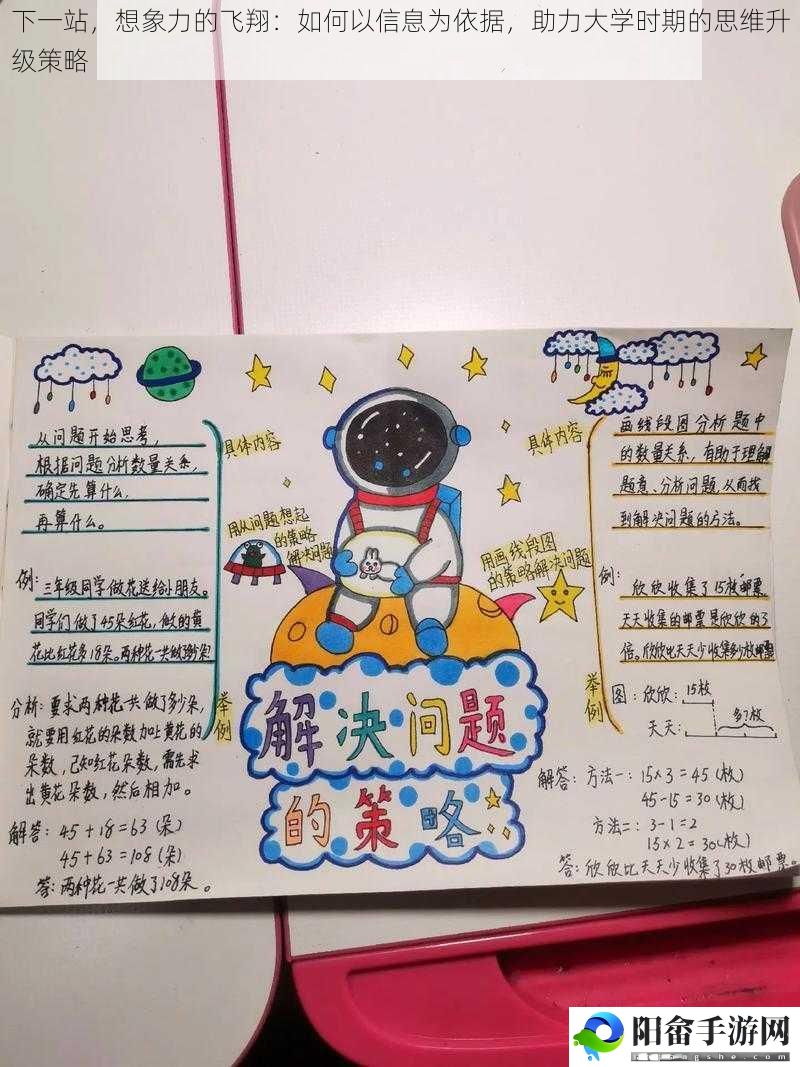 下一站，想象力的飞翔：如何以信息为依据，助力大学时期的思维升
级策略
从问题开始思考，
根据问题分析数量关系，
确定先算什么，
再算什么。
具体内容
用从问题想起
的策略
解决问题
例：三年级同学做花送给小朋友。
同学们做了45朵红花，做的黄
花比红花多18朵。两种花一共做了多少朵
举例
分析：要求两种花一共做了多少朵，
就要用红花的朵数加上黄花的
朵数，已知红花朵数，需先求
出黄花朵数，然后相加。
解答：45+18=63（朵）
45+63=108（朵）
答：两种花一共做了108朵。
解决问题
的策略
具体内容
画线段图分析题中
的数量关系，有助于理解
题意、分析问题，从而找
到解决问题的方法。
用画线段图
的策略解决问题
例：
欣欣收集了15枚邮票
天天收集的邮票是欣欣的3
倍。欣欣比天天少收集多少枚邮票
举例
图：欣欣：15枚
天天：多？枚
解答：方法一：15×3=45（枚）
45-15=30（枚）
方法二：3-1=2
15×2=30（枚）
答：欣欣比天天少收集了30枚邮票。
阳畲手游网